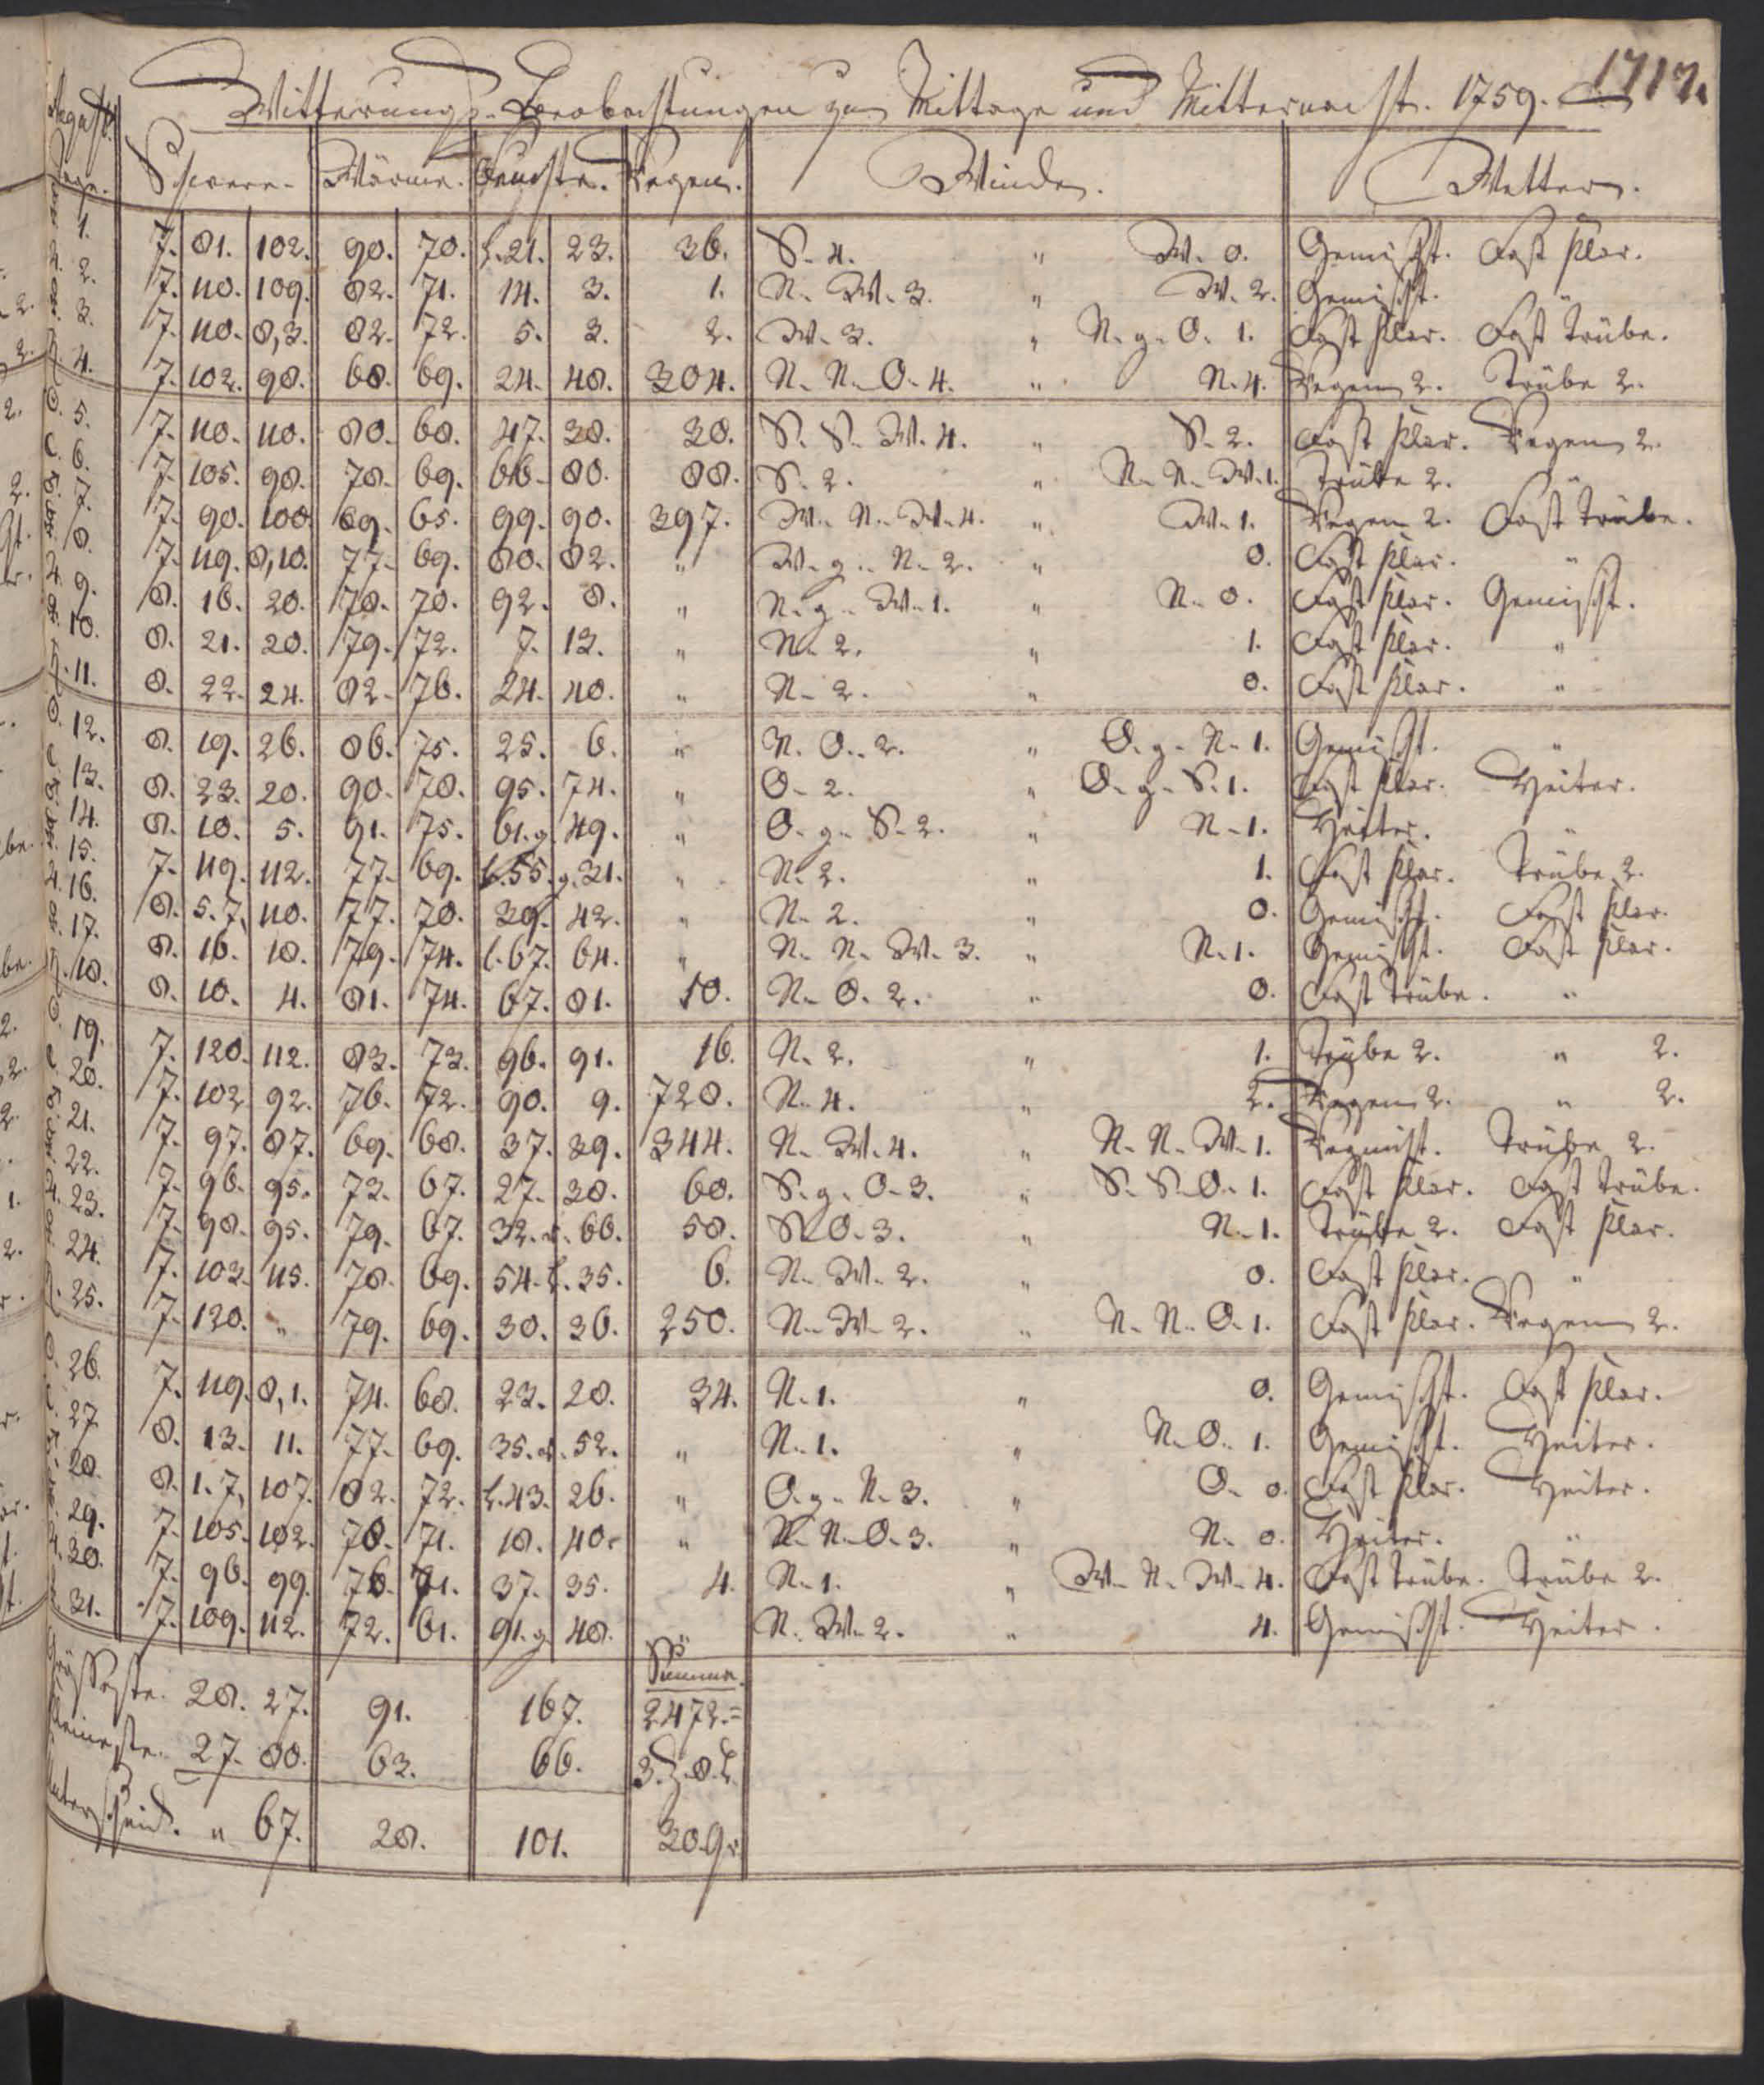 1717.
Witterungs-Beobachtungen zu Mittage und Mitternacht. 1759.
August.
Tage. Schwere. Wärme. Feuchte. Regen. Winde. Wetter.
1. 7. 81. 102. 90. 70. f. 21. 23. 36. S. 4. " W. 0. Gemischt. Fast klar.
2. 7. 110. 109. 82. 71. 14. 3. 1. N. W. 3. " W. 2. Gemischt. "
3. 7. 110. 8,3. 82. 72. 5. 3. 2. W. 3. " N. g. O. 1. Fast klar. Fast trübe.
4. 7. 102. 98. 68. 69. 24. 48. 304. N. N. O. 4. " N. 4. Regen 2. Trübe 2.
5. 7. 110. 110. 80. 68. 47. 38. 30. S. S. W. 4. " S. 2. Fast klar. Regen 2.
6. 7. 105. 98. 78. 69. 66. 80. 88. S. 2. " N. N. W. 1. Trübe 2. "
7. 7. 90. 108. 69. 65. 99. 90. 397. W. N. W. 4. " W. 1. Regen 2. Fast trübe.
8. 7. 119. 8,10. 77. 69. 80. 82. " W. g. N. 2. " 0. Fast klar. "
9. 8. 16. 20. 78. 70. 92. 8. " N. g. W. 1. " N. 0. Fast klar. Gemischt.
10. 8. 21. 20. 79. 72. 7. 13. " N. 2. " 1. Fast klar. "
11. 8. 22. 24. 82. 76. 24. 40. " N. 2. " 0. Fast klar. "
12. 8. 19. 26. 86. 75. 25. 6. " N. O. 2. " O. g. N. 1. Gemischt. "
13. 8. 23. 20. 90. 78. 95. 74. " O. 2. " O. g. S. 1. Fast klar. Heiter.
14. 8. 10. 5. 91. 75. 61. g. 49. " O. g. S. 2. " N. 1. Heiter. "
15. 7. 119. 112. 77. 69. f. 55. g. 31. " N. 2. " 1. Fast klar. Trübe 2.
16. 8. 5. 7, 110. 77. 70. 39. 42. " N. 2. " 0. Gemischt. Fast klar.
17. 8. 16. 18. 79. 74. f. 67. 64. " N. N. W. 3. " N. 1. Gemischt. Fast klar.
18. 8. 10. 4. 81. 74. 67. 81. 10. N. O. 2. " 0. Fast trübe. "
19. 7. 120. 112. 83. 73. 96. 91. 16. N. 2. " 1. Trübe 2. " 2.
20. 7. 102. 92. 76. 72. 90. 9. 720. N. 4. " 2. Regen 2. " 2.
21. 7. 97. 87. 69. 68. 37. 39. 344. N. W. 4. " N. N. W. 1. Trübe 2.
22. 7. 96. 95. 73. 67. 27. 38. 60. S. g. O. 3. " S. S. O. 1. Fast klar. Fast trübe.
23. 7. 98. 95. 79. 67. 32. 66. 58. S. O. 3. " N. 1. Trübe 2. Fast klar.
24. 7. 103. 115. 78. 69. 54. f. 35. 6. N. W. 2. " 0. Fast klar. "
25. 7. 120. " 79. 69. 30. 36. 250. N. W. 2. " N. N. O. 1. Fast klar. Regen 2.
26. 7. 119. 8,1. 74. 68. 23. 28. 34. N. 1. " 0. Gemischt. Fast klar.
27. 8. 13. 11. 77. 69. 35. 52. " N. 1. " N. O. 1. Gemischt. Heiter.
28. 8. 1. 7, 107. 82. 72. f. 43. 26. " O. g. N. 3. " O. 0. Fast klar. Heiter.
29. 7. 105. 102. 78. 71. 18. 40. " N. N. O. 3. " N. 0. Heiter. "
30. 7. 96. 99. 76. 71. 37. 35. 4. N. 1. " W. N. W. 4. Fast trübe. Trübe 2.
31. 7. 109. 112. 72. 61. 91. g. 48. " N. W. 2. " 4. Gemischt. Heiter.
Summe.
28. 27. 91. 167. 2472.=
27. 80. 63. 66. 3. 8.
Unterscheid. " 67. 28. 101. 30 gr.